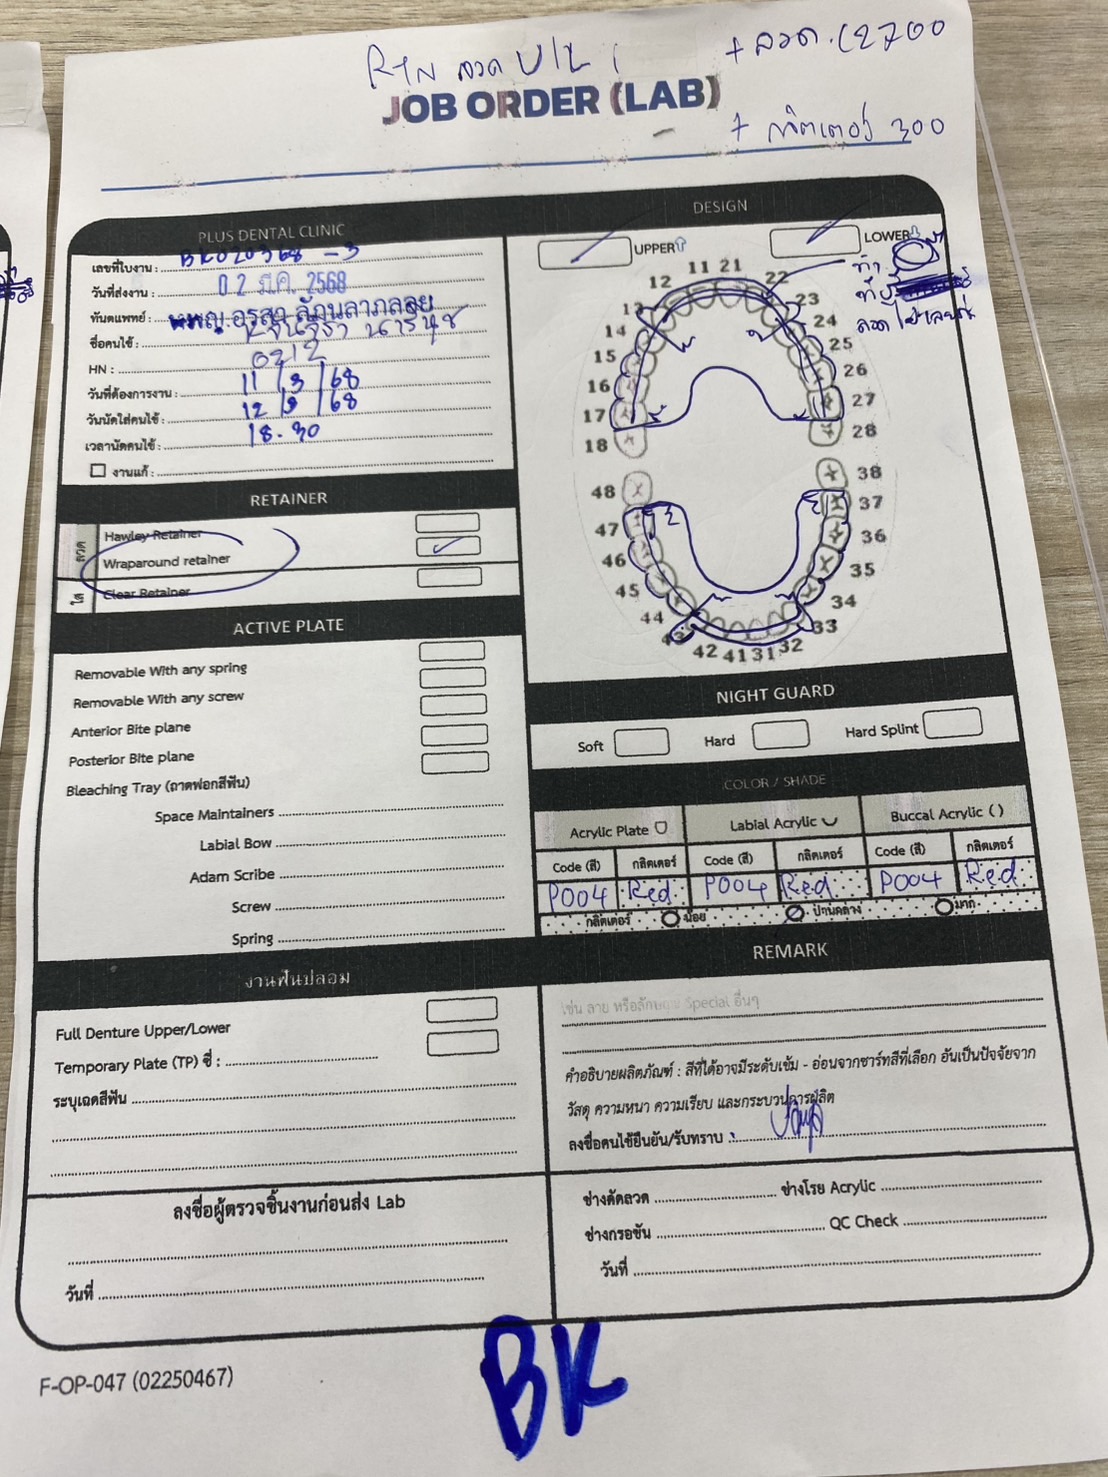 RTN ลวด U/L
+ ลวด (2700
JOB ORDER (LAB)
+ กลิตเตอร์ 300
PLUS DENTAL CLINIC
เลขที่ใบงาน : BK020368 -3
วันที่ส่งงาน : 02 มี.ค. 2568
ทันตแพทย์ :
ชื่อคนไข้ :
HN : 0212
วันที่ต้องการงาน : 11/3/68
วันนัดใส่คนไข้ : 12/3/68
เวลานัดคนไข้ : 18.30
งานแก้ :
RETAINER
ลวด
Hawley Retainer
Wraparound retainer
ใส
Clear Retainer
ACTIVE PLATE
Removable With any spring
Removable With any screw
Anterior Bite plane
Posterior Bite plane
Bleaching Tray (ถาดฟอกสีฟัน)
Space Maintainers
Labial Bow
Adam Scribe
Screw
Spring
งานฟันปลอม
Full Denture Upper/Lower
Temporary Plate (TP) ซี่ :
ระบุเฉดสีฟัน
ลงชื่อผู้ตรวจชิ้นงานก่อนส่ง Lab
วันที่
DESIGN
UPPER
LOWER
11 21
12 22
13 23
14 24
15 25
16 26
17 27
18 28
48 38
47 37
46 36
45 35
44 34
43 33
42 41 31 32
NIGHT GUARD
Soft Hard Hard Splint
COLOR / SHADE
Acrylic Plate Labial Acrylic Buccal Acrylic ( )
Code (สี) กลิตเตอร์ Code (สี) กลิตเตอร์ Code (สี) กลิตเตอร์
P004 Red P004 Red P004 Red
กลิตเตอร์ น้อย ปานกลาง มาก
REMARK
เช่น ลาย หรือลักษณะ Special อื่นๆ
คำอธิบายผลิตภัณฑ์ : สีที่ได้อาจมีระดับเข้ม - อ่อนจากชาร์ทสีที่เลือก อันเป็นปัจจัยจาก
วัสดุ ความหนา ความเรียบ และกระบวนการผลิต
ลงชื่อคนไข้ยืนยัน/รับทราบ :
ช่างดัดลวด ช่างโรย Acrylic
ช่างกรอขัน QC Check
วันที่
BK
F-OP-047 (02250467)